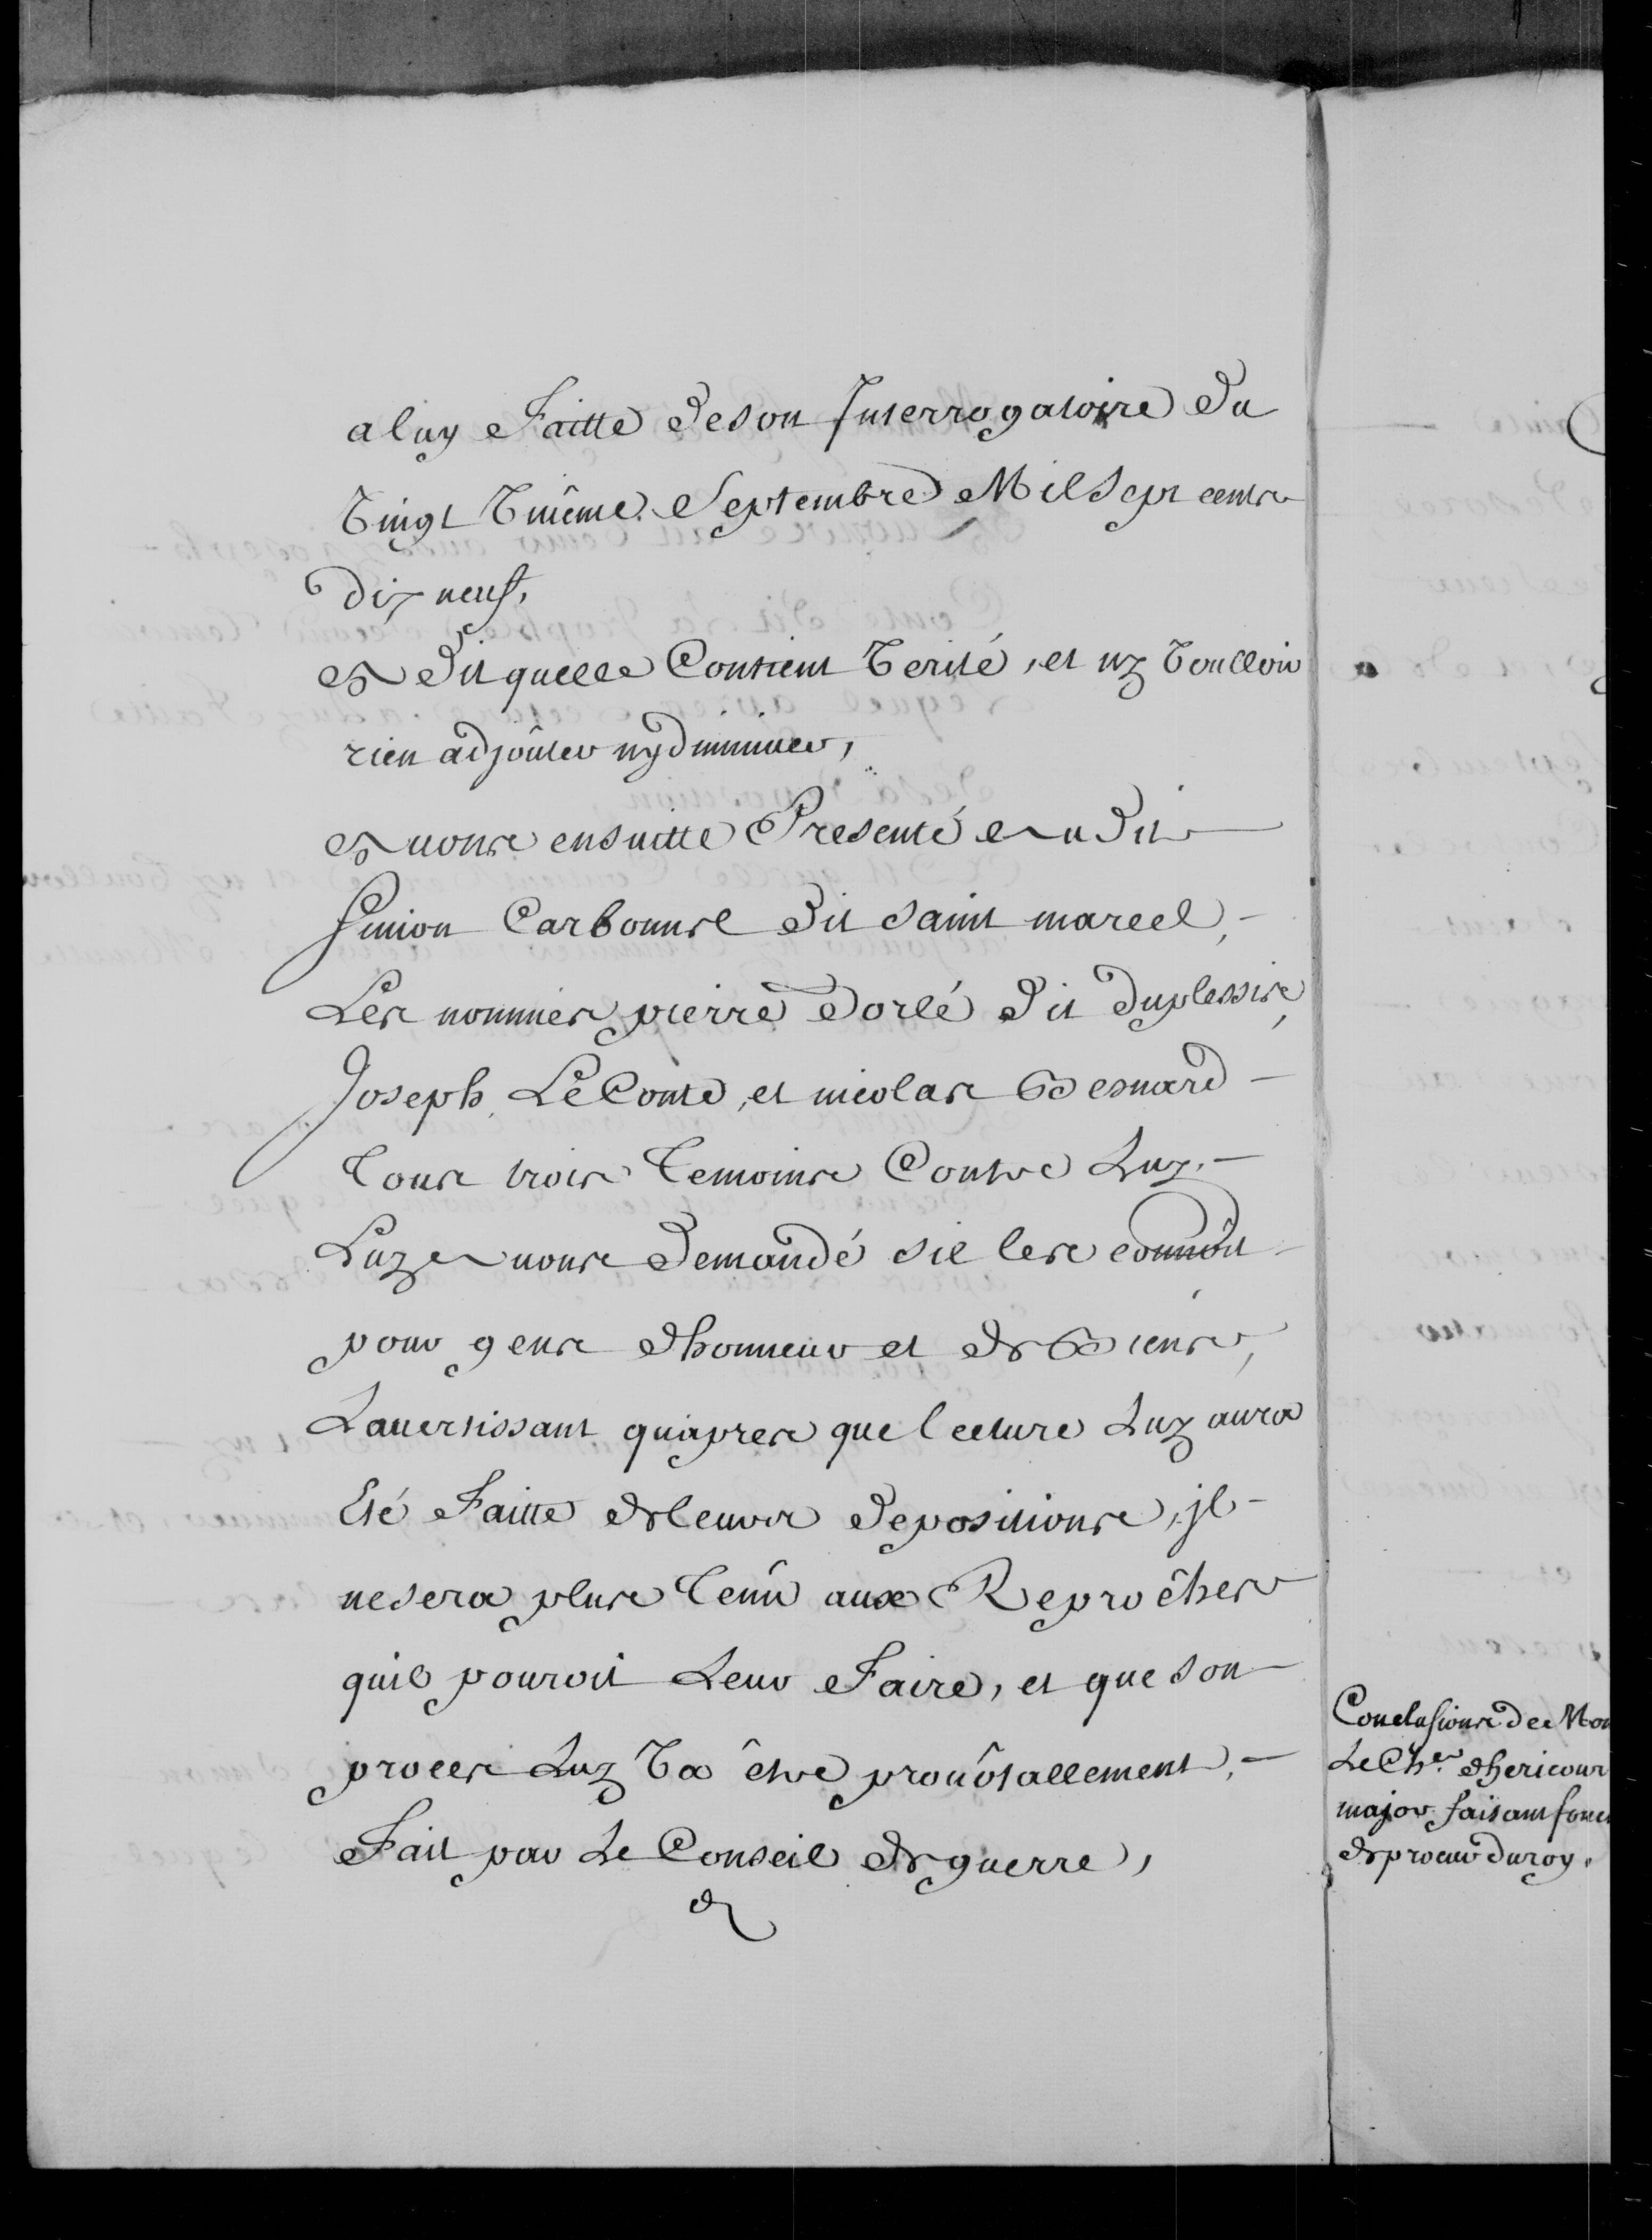 a luy Faitte de son Interrogatoire du
Vingt Vnième Septembre Mil Sept cents
dix neuf,
a dit quelle Contient Verité, et ny Voulloir
rien adjoûter ny diminuer,
a nous ensuitte Presenté au dit
Simon Carbonnel dit saint marcel, -
Les nommés pierre dorlé dit duplessis,
Joseph LeComte, et nicolas Besnard -
tous trois temoins Contre Luy. -
Luy a nous demandé sil les connoit
pour gens dhonneur et de Biens,
Lauertissant quapres que lecture Luy aura
Eté Faitte de leurs depositions, jl -
ne sera plus tenû aux Reprôches
quil pouroit Leur Faire, et que son
proces Luy Va être prouôtallement, -
Fait par Le Conseil de guerre,
Conclusions de Mon
Le Chr. dhericour
major faisant fonc
de procur du roy.